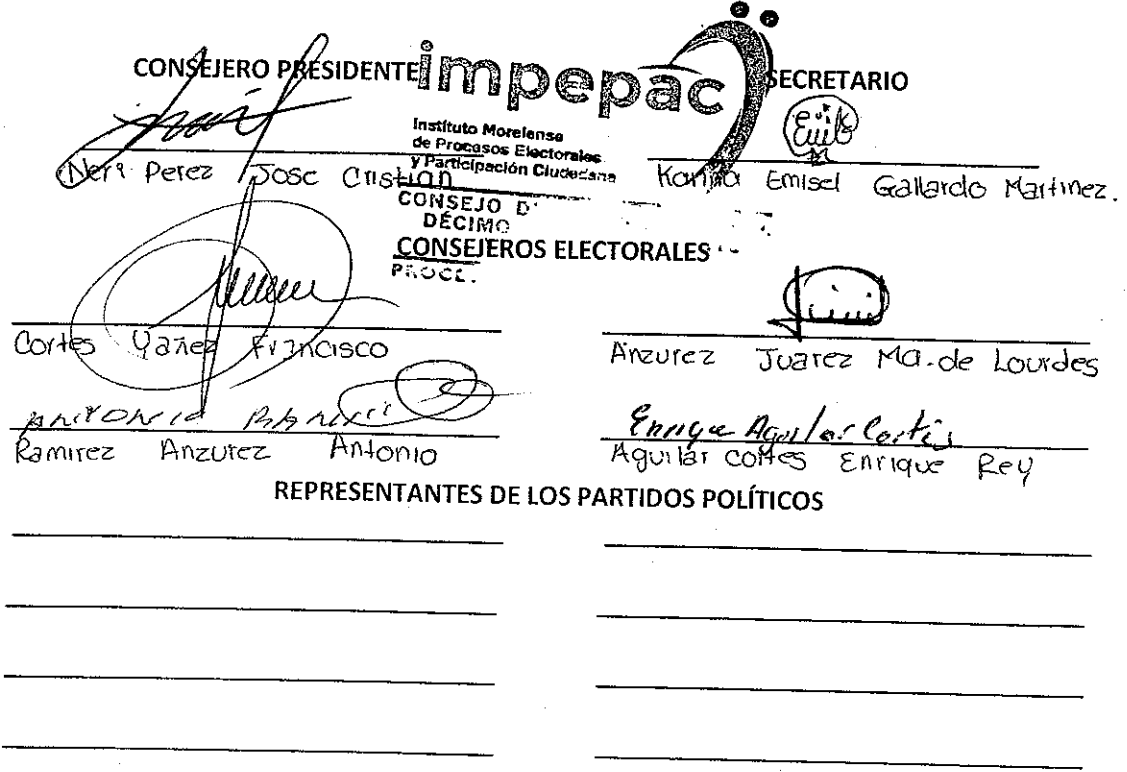 CONSEJERO PRESIDENTE
impepac
SECRETARIO
Instituto Morelense
de Procesos Electorales
y Participación Ciudadana
Neri Perez Jose Cristian
Karina Emisel Gallardo Martinez.
CONSEJO
DÉCIMO
CONSEJEROS ELECTORALES
Cortes Yañez Francisco
Anzurez Juarez Ma. de Lourdes
Ramirez Anzurez Antonio
Enrique Aguilar Cortés
Aguilar Cortes Enrique Rey
REPRESENTANTES DE LOS PARTIDOS POLÍTICOS